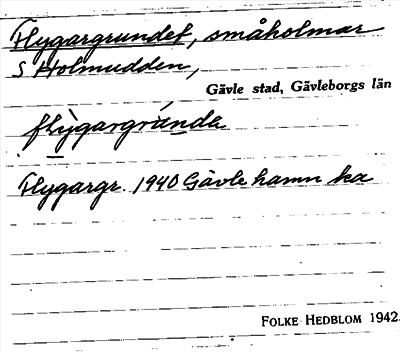 Flygargrundet, småholmar
S Holmudden,
Gävle stad, Gävleborgs län
flỳgargrúndə
Flygargr. 1940 Gävle hamn ka
FOLKE HEDBLOM 1942.